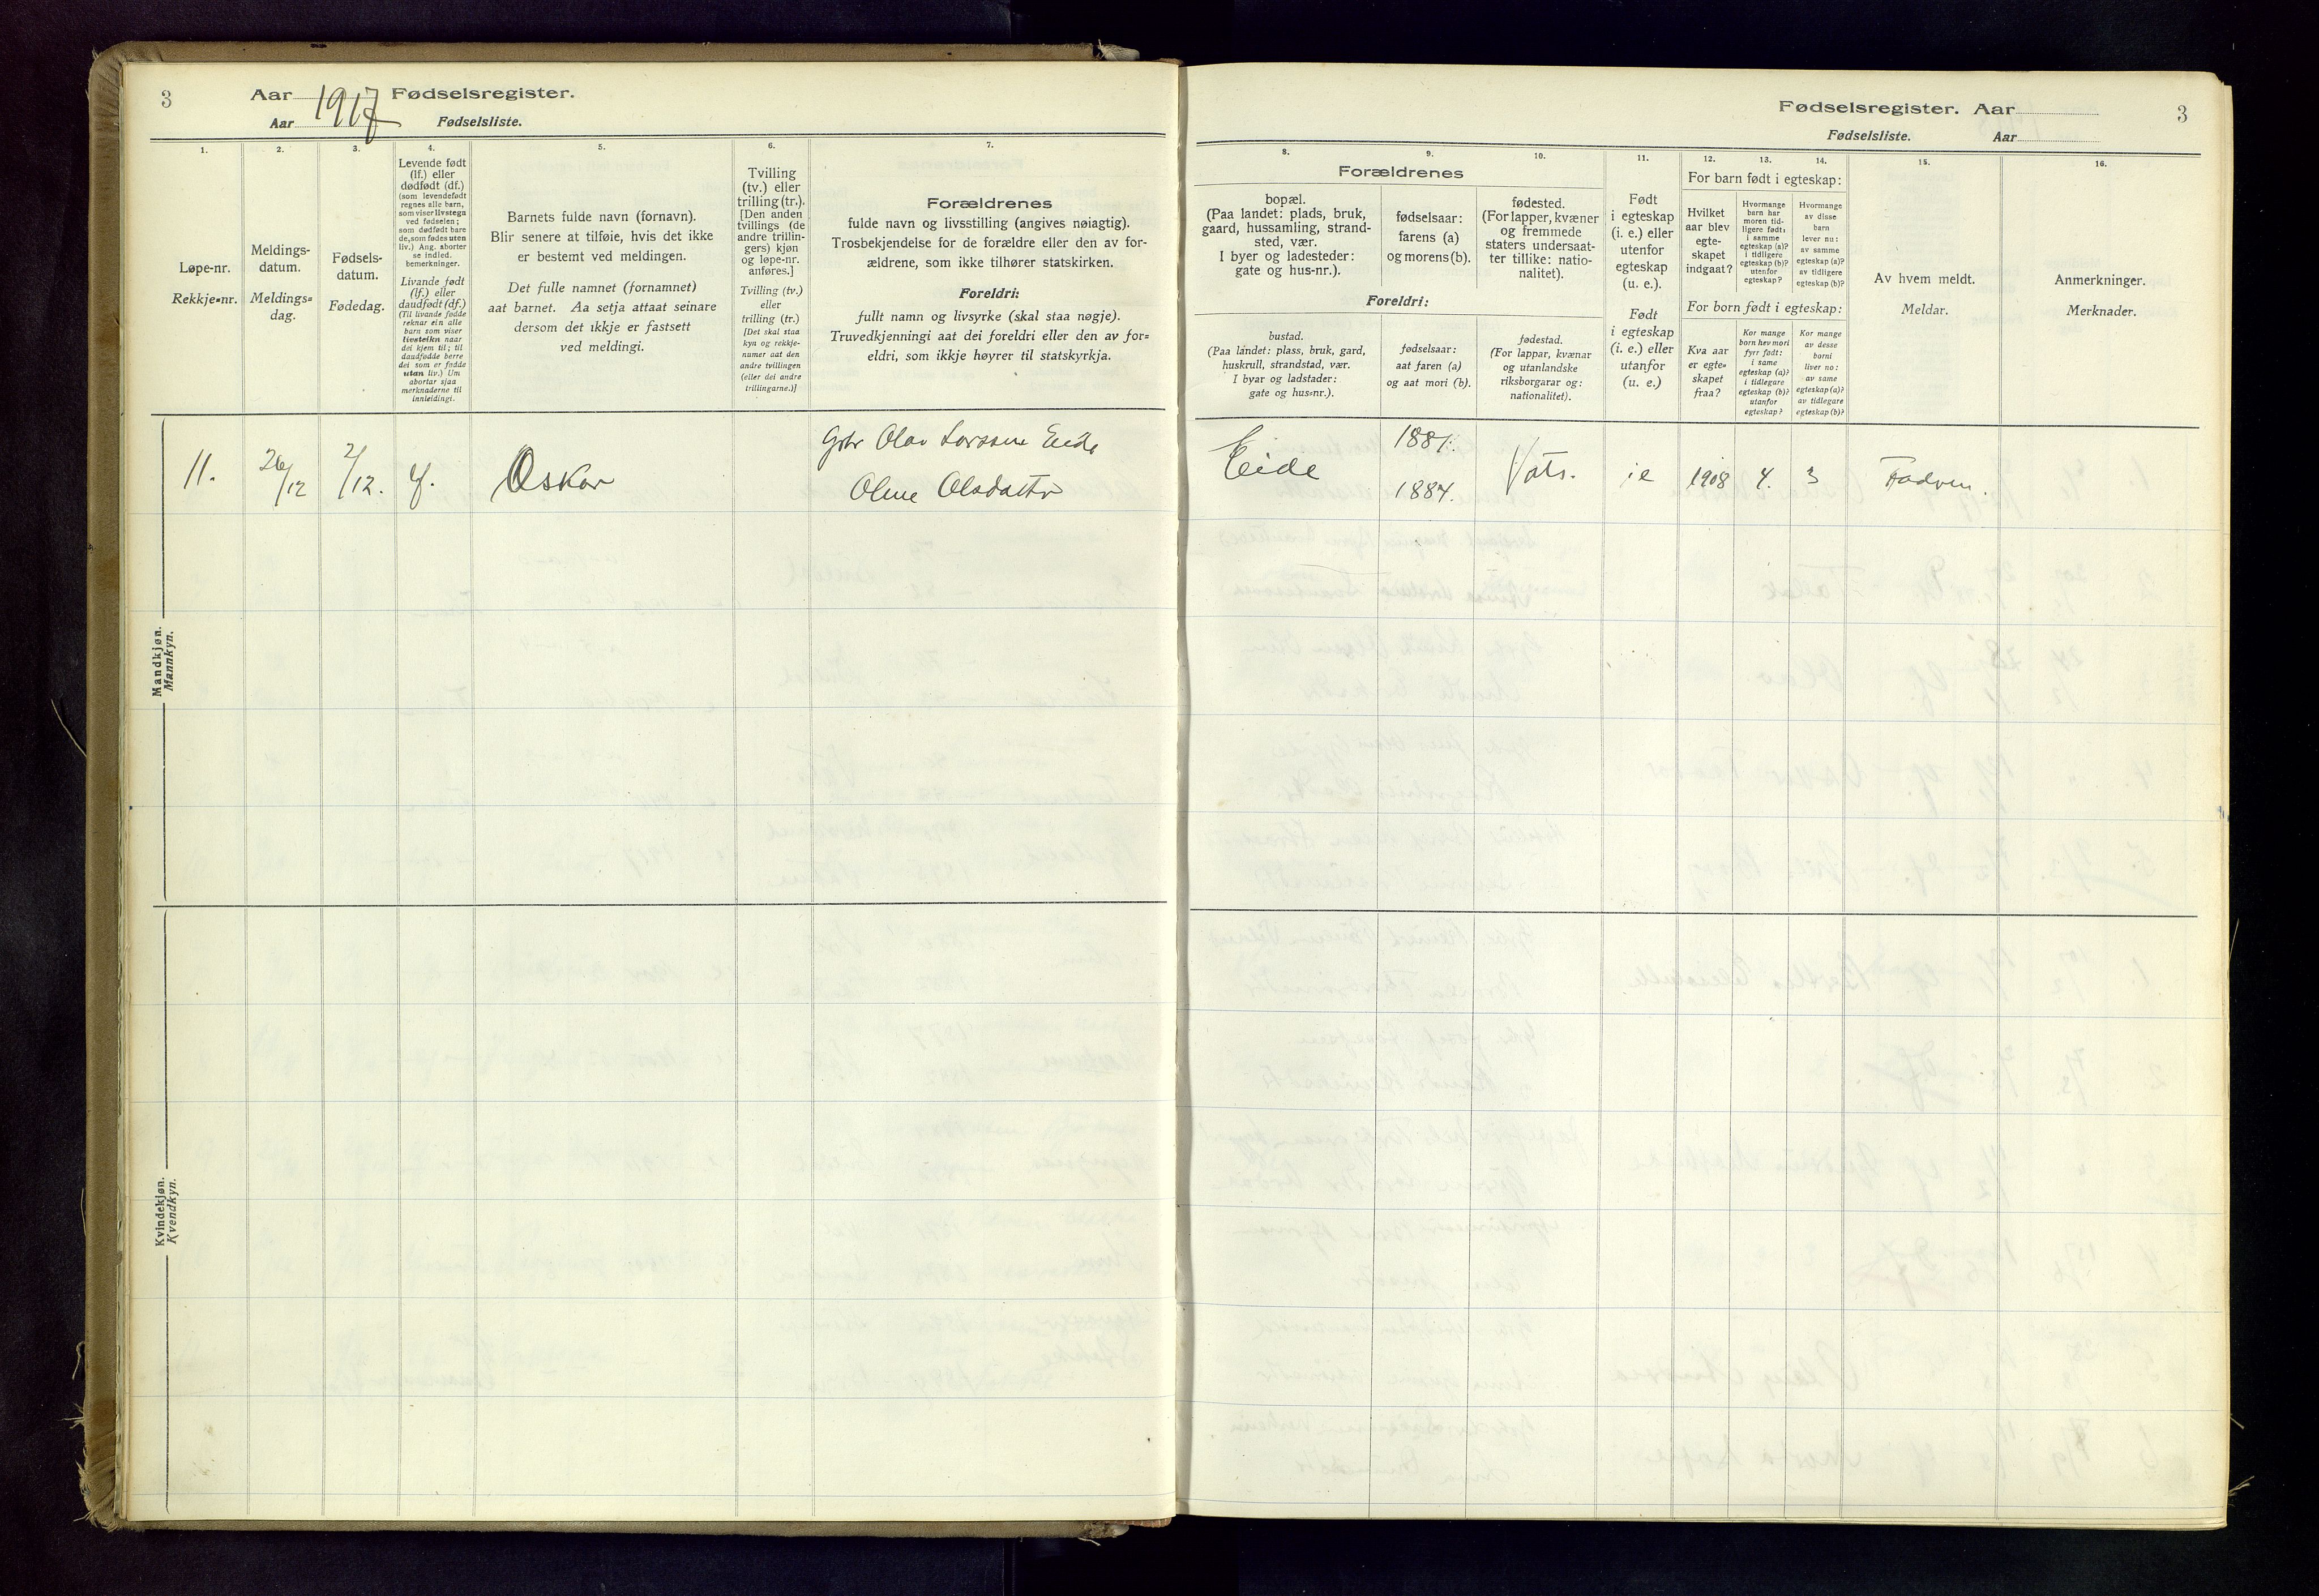 3
Aar 1917 Fødselsregister.
Aar Fødselsliste.
1.
Løpe-nr.
Rekkje=nr.
2.
Meldings-
datum.
Meldings=
dag.
3.
Fødsels-
datum.
Fødedag.
4.
Levende født
(lf.) eller
dødfødt (df.)
(som levendefødt
regnes alle barn,
som viser livstegn
ved fødselen;
som dødfødt bare
de, som fødes uten
liv.) Ang. aborter
se indled.
bemerkninger.
Livande født
(lf.) eller
daudfødt (df.)
(Til livande fødde
reknar ein alle
barn som viser
livsteikn naar
dei kjem til; til
daudfødde berre
dei som er fødde
utan liv.) Um
abortar sjaa
merknaderne til
innleidingi.
5.
Barnets fulde navn (fornavn).
Blir senere at tilføie, hvis det ikke
er bestemt ved meldingen.
Det fulle namnet (fornamnet)
aat barnet. Aa setja attaat seinare
dersom det ikkje er fastsett
ved meldingi.
6.
Tvilling
(tv.) eller
trilling (tr.).
[Den anden
tvillings (de
andre trillin-
gers) kjøn
og løpe-nr.
anføres.]
Tvilling (tv.)
eller
trilling (tr.)
[Det skal staa
kyn og rekkje-
numer aat den
andre tvillingen
(eller dei andre
trillingarne.)]
7.
Forældrenes
fulde navn og livsstilling (angives nøiagtig).
Trosbekjendelse for de forældre eller den av for-
ældrene, som ikke tilhører statskirken.
Foreldri:
fullt namn og livsyrke (skal staa nøgje).
Truvedkjenningi aat dei foreldri eller den av for=
eldri, som ikkje høyrer til statskyrkja.
Mandkjøn.
Mannkyn.
11.
26/12
2/12.
lf.
Oskar
Gbr Olav Larssen Eide
Oline Olsdatter
Kvindekjøn.
Kvendkyn.
Fødselsregister. Aar
3
Fødselsliste. Aar
8.
9.
10.
Forældrenes
bopæl.
(Paa landet: plads, bruk,
gaard, hussamling, strand-
sted, vær.
I byer og ladesteder:
gate og hus-nr.).
fødselsaar:
farens (a)
og morens (b).
fødested.
(For lapper, kvæner
og fremmede
staters undersaat-
ter tillike: natio-
nalitet).
Foreldri:
bustad.
(Paa landet: plass, bruk, gard,
huskrull, strandstad, vær.
I byar og ladstader:
gate og hus=nr.).
fødselsaar:
aat faren (a)
og aat mori (b).
fødestad.
(For lappar, kvænar
og utanlandske
riksborgarar og:
nationalitet).
11.
Født
i egteskap
(i. e.) eller
utenfor
egteskap
(u. e.).
Født
i egteskap
(i. e.) eller
utanfor
(u. e.)
12.
13.
14.
For barn født i egteskap:
Hvilket
aar blev
egte-
skapet
indgaat?
Hvormange
barn har
moren tid-
ligere født:
i samme
egteskap (a)?
i tidligere
egteskap (b)?
utenfor
egteskap?
Hvormange
av disse
barn
lever nu:
av samme
egteskap (a)?
av tidligere
egteskap (b)?
For born født i egteskap:
Kva aar
er egte=
skapet
fraa?
Kor mange
born hev mori
fyrr født:
i same
egteskap (a)?
i tidlegare
egteskap (b)?
utanfor
egteskap?
Kor mange
av desse
borni
liver no:
av same
egteskap (a)?
av tidlegare
egteskap (b)?
15.
Av hvem meldt.
Meldar.
16.
Anmerkninger.
Merknader.
Eide
1881.
1884.
Vats.
ie
1908
4.
3
Fadren.